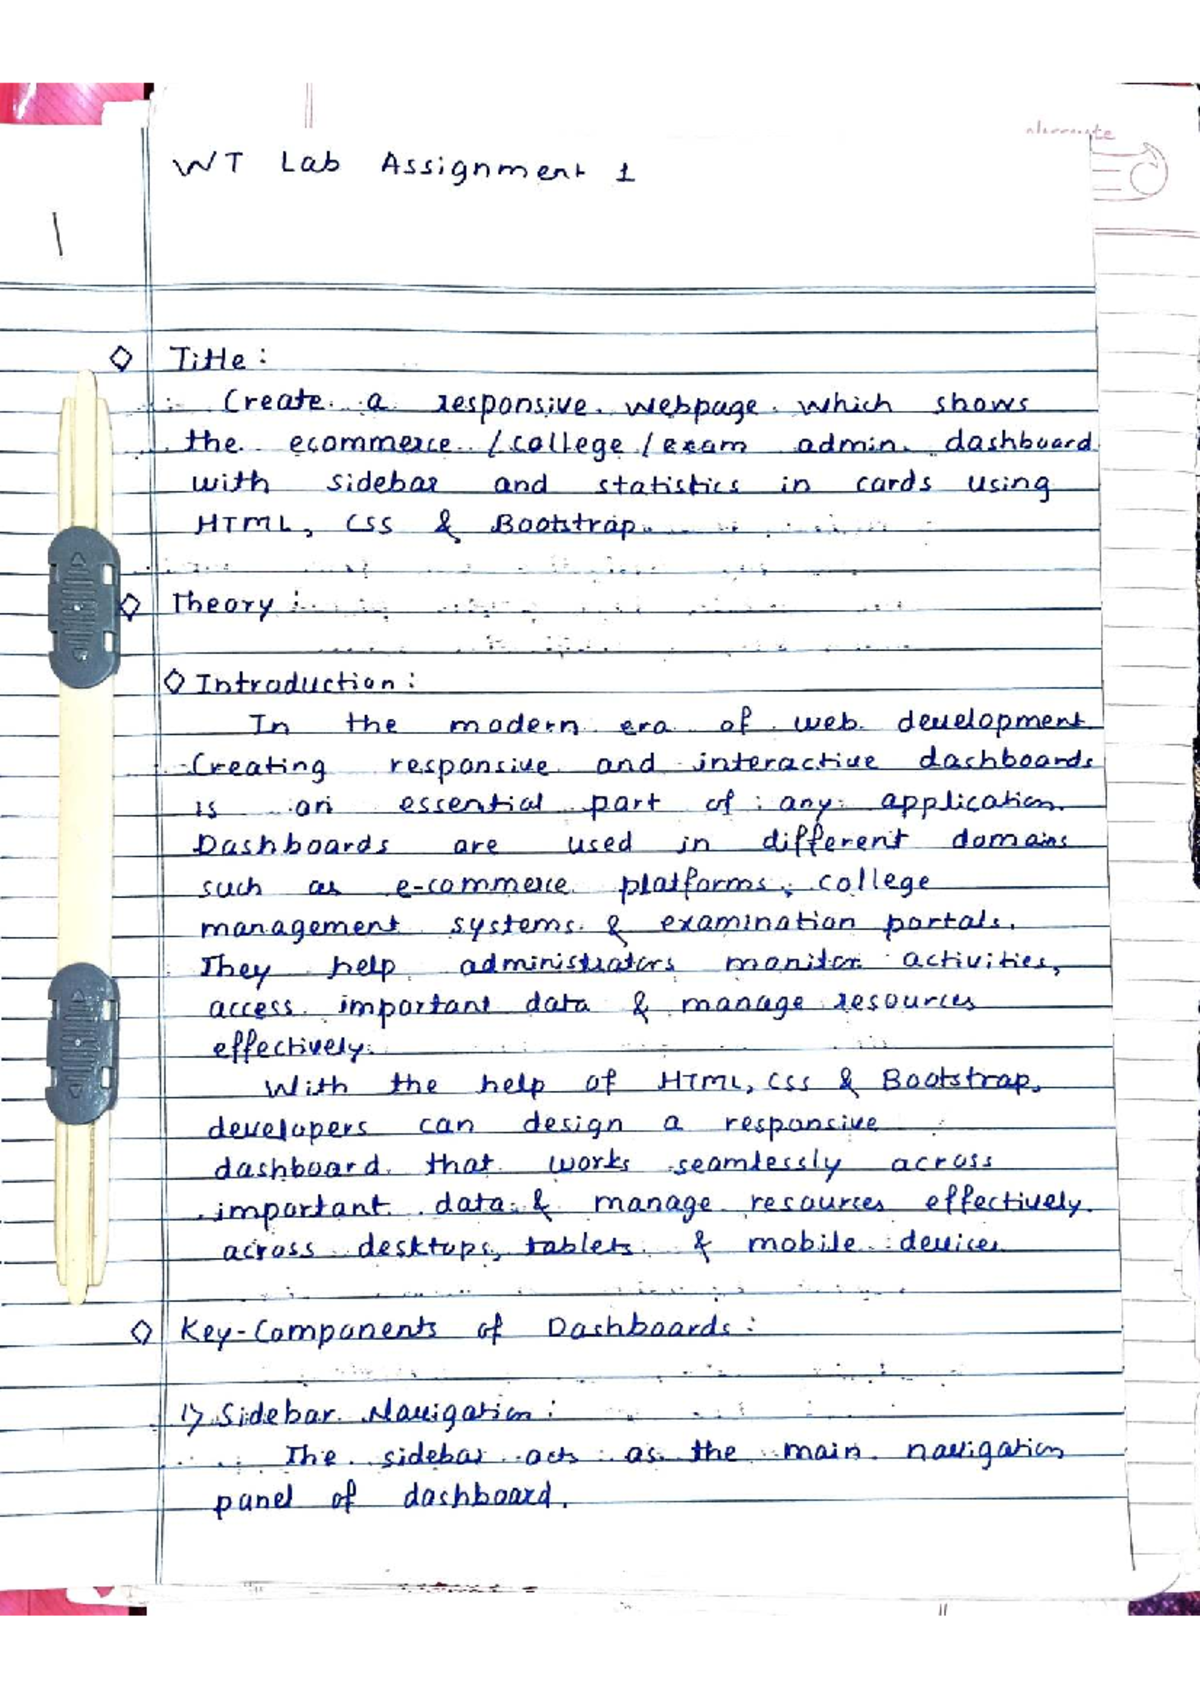 WT Lab Assignment 1
◇ Title :
Create a responsive webpage which shows
the ecommerce / college / exam admin dashboard
with sidebar and statistics in cards using
HTML, CSS & Bootstrap.
◇ Theory :
◇ Introduction :
In the modern era of web development
Creating responsive and interactive dashboards
is an essential part of any application.
Dashboards are used in different domains
such as e-commerce platforms, college
management systems & examination portals.
They help administrators monitor activities,
access important data & manage resources
effectively.
With the help of HTML, CSS & Bootstrap,
developers can design a responsive
dashboard that works seamlessly across
important data & manage resources effectively.
across desktops, tablets & mobile devices
◇ Key-Components of Dashboards :
1) Sidebar Navigation :
The sidebar acts as the main navigation
panel of dashboard.